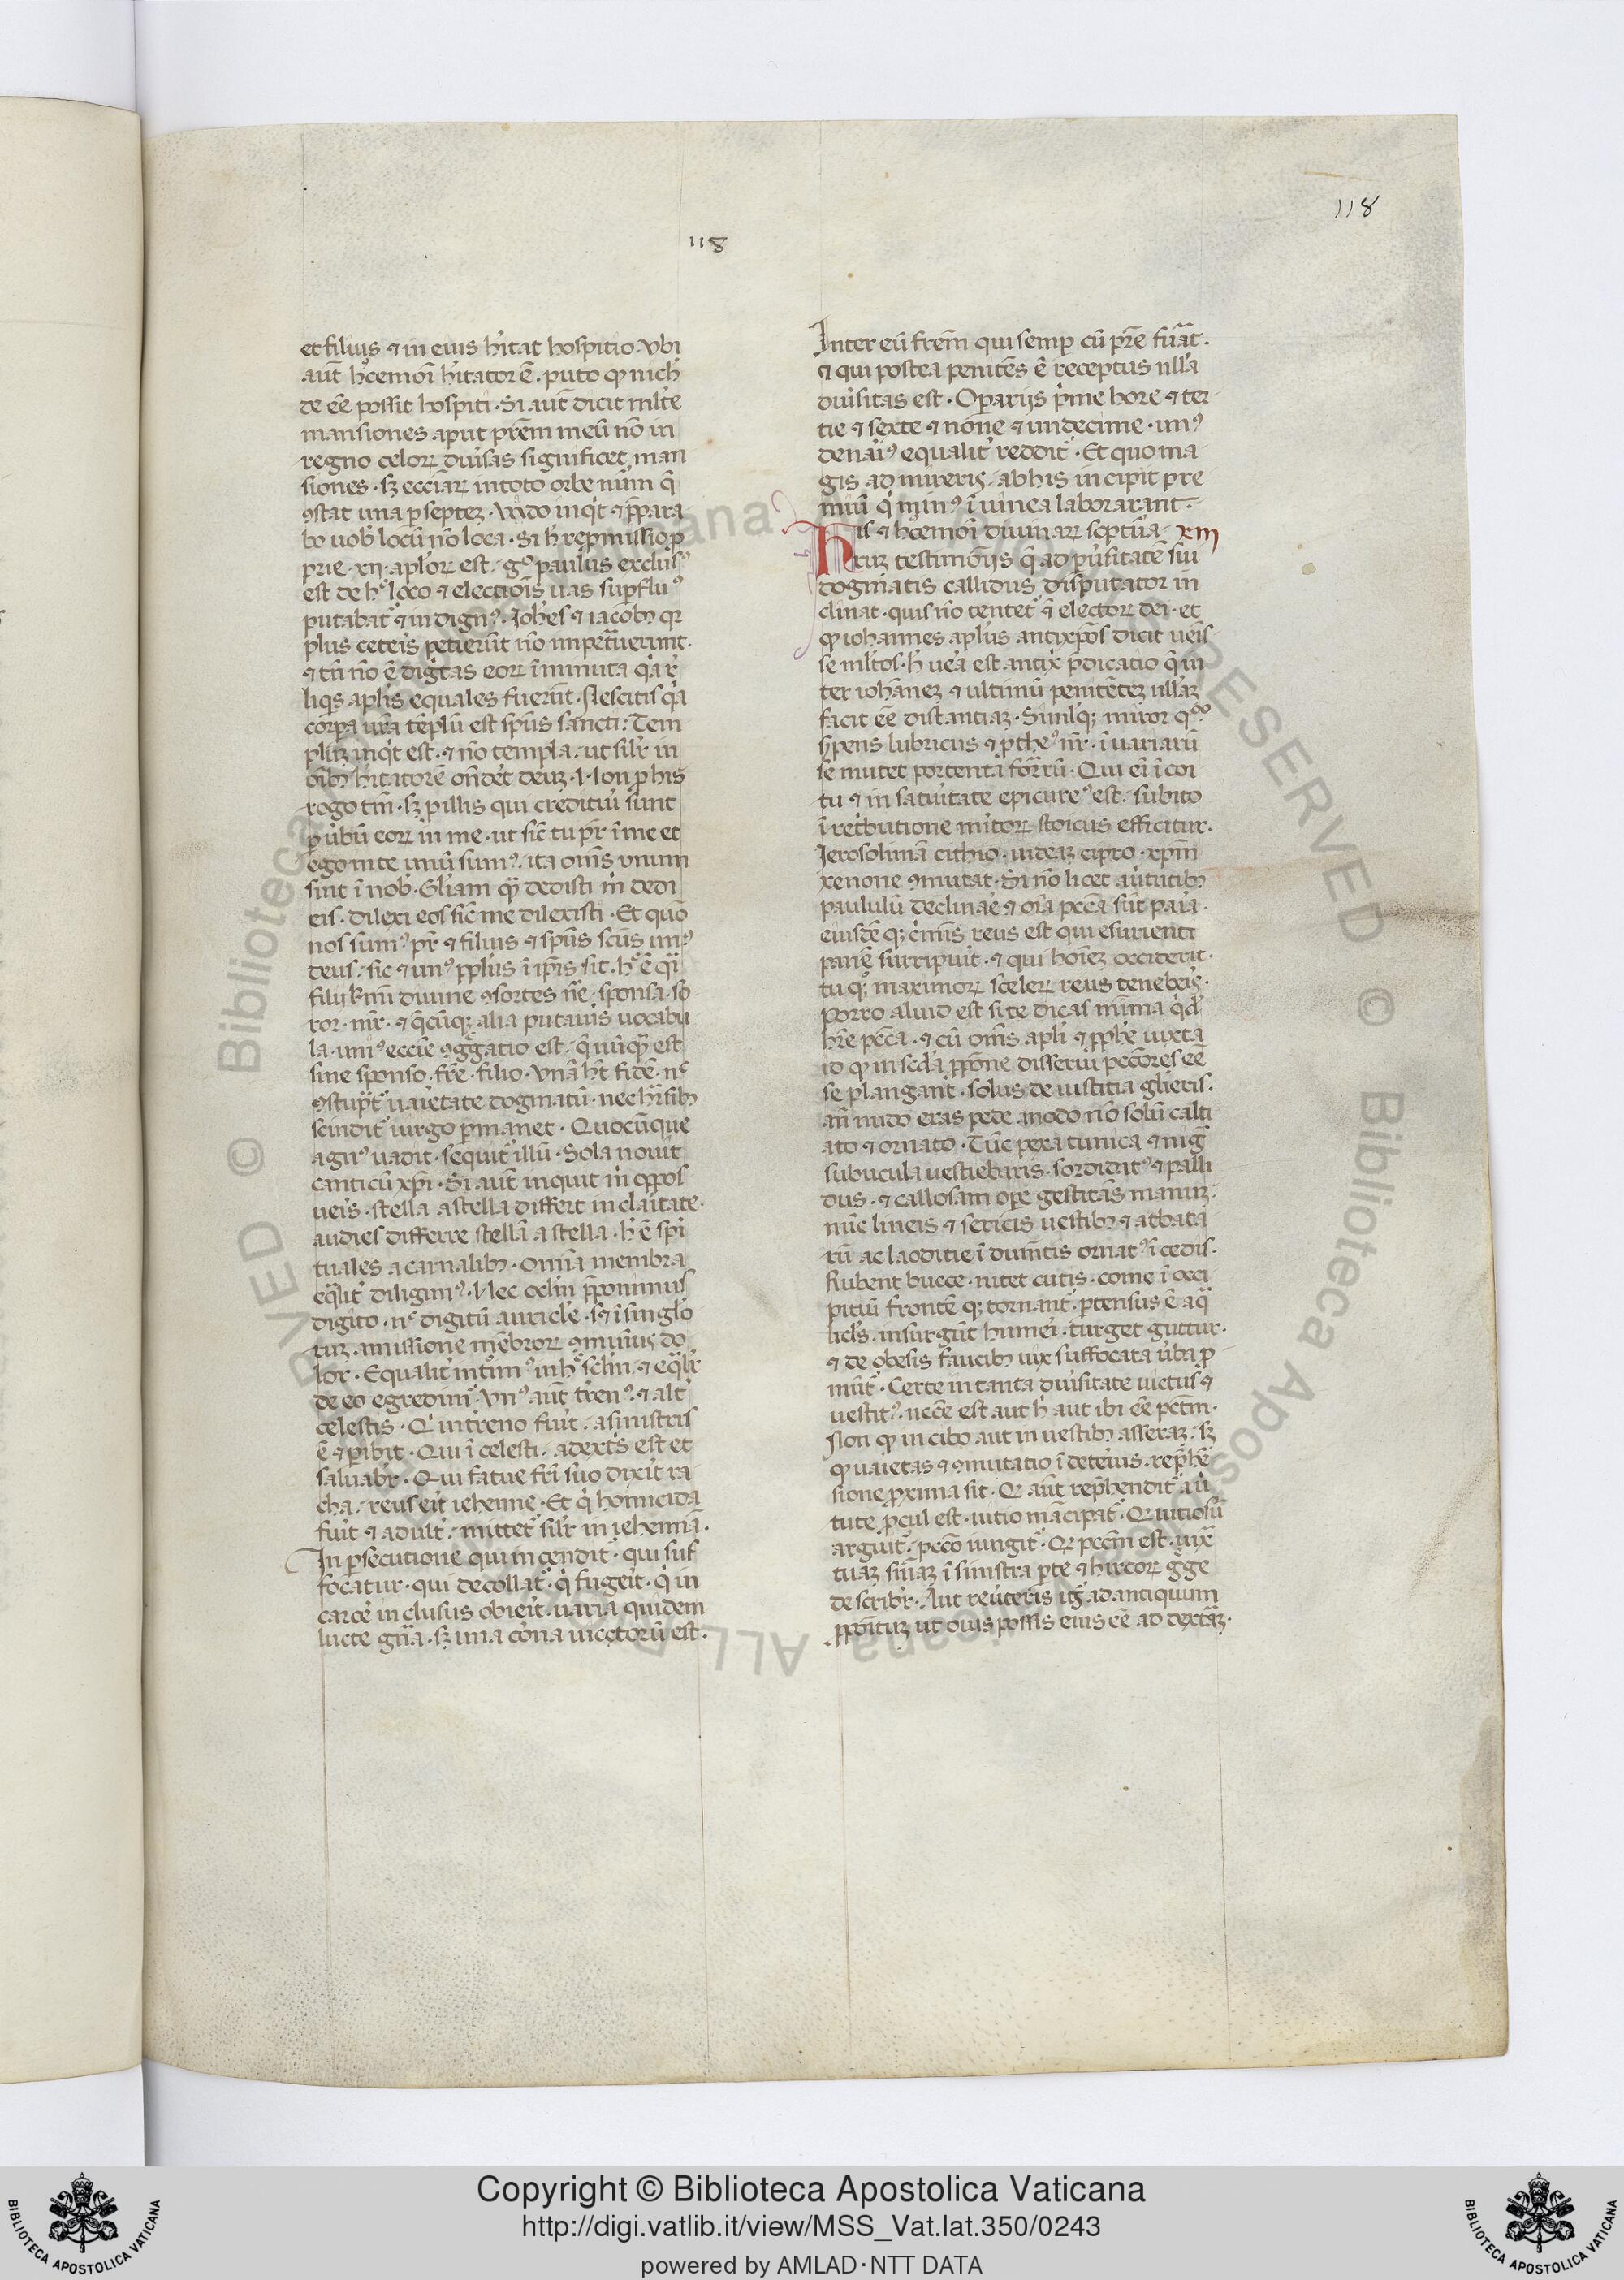 118
118
et filius ⁊ in eius hitat hospitio. Vbi
aut̄ hc̄emoī hitator ē. puto ꝙ nich̄
de eē possit hospiti. Si aut̄ dicit mlt̄e
mansiones aput pr̄em meū nō in
regno celoꝝ diu̓sas significet man
siones. sꝫ eccl̓iaꝝ in toto orbe num̄ q̄
ꝯstat una ꝑ septeꝫ. Vado inq̓t ⁊ p̄para
bo uob̓ locū nō loca. Si h̄ repmissio ꝓ
prie. xii. apl̓oꝝ est. gͦ paulus exclusꝰ
est de hͦ loco ⁊ electiōis uas suꝑfluꝰ
putabat᷑ ⁊ indignꝰ. Joh̄es ⁊ iacobꝫ qꝛ
plus cetei̓s petierūt nō impet̄uerunt.
⁊ tn̄ nō ē dig̓tas eoꝝ īminuta q̓a r̓
liq̓s apl̓is equales fuerūt. Nescitis q̓a
corꝑa ur̄a tēplū est spūs sancti: Tem
pluꝫ inq̓t est. ⁊ nō templa. ut silr̓ in
oīb̓ hitatorē on̄det deuꝫ. Non ꝓ his
rogo tm̄. sꝫ ꝓ illis qui credituri sunt
ꝑ u̓bū eoꝝ in me. ut sic̄ tu pr̄ ī me et
ego in te unū sumꝰ. ita om̄s vnum
sint ī nob̓. Gl̓iam qᷓ dedisti m̓ dedi
eis. dilexi eos sic̄ me dilexisti. Et quō
nos sumꝰ pr̄ ⁊ filius ⁊ spūs sc̄us unꝰ
deus. sic ⁊ unꝰ ppl̓us ī ip̄is sit. hͦ ē q̓i
filij kmī diuine ꝯsortes nē. sponsa. so
ror. mr̄. ⁊ q̄cūqꝫ alia putaui̓s uocabu
la. uniꝰ eccl̓ie ꝯgᷓgatio est. q̄ nūqᷓ est
sine sponso. fr̄e. filio. Vnā ht̄ fidē. nͨ
ꝯstupᷓt᷑ uai̓etate dogmatū. nec hr̓esibꝫ
scindit᷑ uirgo ꝑmanet. Quocūque
agnꝰ uadit. sequit᷑ illū. Sola nouit
canticū xp̄i. Si aut̄ inquit m̓ oppos
uei̓s. stella a stella differt in clai̓tate.
audies differre stellā a stella. h̓ ē spi̓
tuales a carnalibꝫ. Om̄a membra
eq̓lit̓ diligimꝰ. Nec oclm̄ p̄ponimus
digito. nͨ digitū auricle. sꝫ ī singlo
ruꝫ amissione mēbroꝝ ꝯmunis do
lor. Equalit̓ int̄mꝰ in hͦ sclm̄. ⁊ eq̓lr̓
de eo egredim᷑. Vnꝰ aut̄ tr̓enꝰ. ⁊ alt̓
celestis. Q̓ in treno fuit. a sinistris
ē ⁊ ꝑibit. Qui ī celesti. a dext̓s est et
saluabr̓. Qui fatue fr̄i suo dixit ra
cha. reus eit iehenne. Et q̓ homicida
fuit ⁊ adult̓. mittet᷑ silr̓ in iehennā.
In ꝑsecutione qui incendit᷑. qui suf
focatur. qui decollat᷑. q̓ fugeit̓. q̓ in
carce̓ inclusus obieit̓. uaria quidem
lucte gn̄a. sꝫ una corōa uictorū est.
Inter eū frēm qui semꝑ cū pr̄e fūat.
⁊ qui postea penitēs ē receptus nll̓a
diu̓sitas est. Oꝑarijs p̓me hore ⁊ ter
tie ⁊ sexte ⁊ none ⁊ undecime. unꝰ
denai̓ꝰ equalit̓ reddit᷑. Et quo ma
gis admireris. ab his incipit pre
miū q̓ minꝰ ī uinea laborarant.
His ⁊ hc̄emoī diuinaꝝ scptūa xiii
ruꝫ testimōijs q̄ ad ꝑu̓sitatē sui
dogmatis callidus disputator in
clinat. quis nō tentet᷑ ⁊ electoꝝ dei. et
ꝙ iohannes apl̓us antixp̄os dicit uei̓s
se ml̓tos. h̓ uea̓ est antix̄ p̄dicatio q̄ in
ter iohāneꝫ ⁊ ultimū penitēteꝫ nll̓aꝫ
facit eē distantiaꝫ. Simlqꝫ miror qͦͦ
serpens lubricus ⁊ ꝓtheꝰ nr̄. ī uariarū
se mutet portenta forrū. Qui ei̓ ī coi
tu ⁊ in satui̓tate epicureꝰ est. subito
ī ret̓butione mi̓toꝝ stoicus efficitur.
Jerosolimā cithio. iudeaꝫ cipro. xp̄m
xenone ꝯmutat. Si nō licet au̓tutibꝫ
paululū declinae̓ ⁊ oīa pcc̄a sūt paia̓.
eiusdē qꝫ c̓mīs reus est qui esurienti
panē surripuit. ⁊ qui hoīeꝫ occiderit.
tu qͦꝫ maximoꝝ sceleꝝ reus teneberis.
Porro aliud est si te dicas mīma q̓dē
hr̄e pcc̄a. ⁊ cū om̄s apl̓i ⁊ ꝓphe iuxta
id ꝙ in sc̄da ꝓpōne disserui pcc̄ores eē
se plangant. solus de iustitia gl̓ieris.
an̄ nudo eras pede. modo nō solū calti
ato ⁊ ornato. Tūc pexa tunica ⁊ nigᷓ
subucula uestiebaris. sordidatꝰ ⁊ palli
dus. ⁊ callosam oꝑe gestitās manuꝫ.
nūc lineis ⁊ sericis uestibꝫ ⁊ atbata
rū ac laoditie īdumtis ornatꝰ īcedis.
Rubent bucce. nitet cutis. come ī occi
pitiū frontē qꝫ tornant᷑. ꝓtensus ē aqᷓ
licl̓s. insurgūt humei̓. turget guttur.
⁊ de obesis faucibꝫ uix suffocata u̓ba ꝓ
mūt᷑. Certe in tanta diu̓sitate uictus ⁊
uestitꝰ. necc̄e est aut h̓ aut ibi eē pcc̄m.
Non ꝙ in cibo aut in uestibꝫ asseraꝫ. sꝫ
ꝙ uai̓etas ⁊ ꝯmutatio ī detei̓us. reprhē
sione ꝓxima sit. Qꝛ aut̄ reprhendit᷑ a u̓
tute ꝓcul est. uitio mācipat᷑. Qꝛ uitiosū
arguit᷑. pcc̄o iungit᷑. Qꝛ pcc̄m est. iux̄
tuaꝫ snīaꝫ ī sinistra ꝑte ⁊ hircoꝝ gͤge
describr̓. Aut reu̓teris igr̓ ad antiquum
ꝓpōituꝫ ut ouis possis eius eē ad dext̓aꝫ.
Copyright © Biblioteca Apostolica Vaticana
http://digi.vatlib.it/view/MSS_Vat.lat.350/0243
powered by AMLAD·NTT DATA
BIBLIOTECA APOSTOLICA VATICANA
BIBLIOTECA APOSTOLICA VATICANA